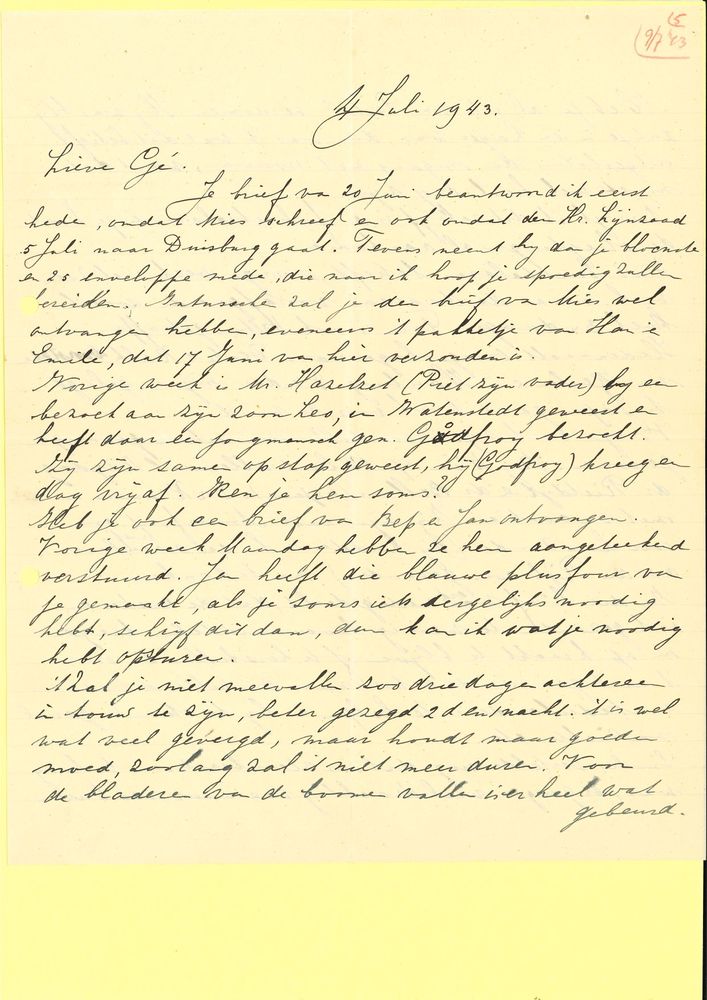 15
(9/7 43
4 Juli 1943.
Lieve Gé.
Je brief va 20 Juni beantwoord ik eerst
heden, omdat Mies schreef en ook omdat den Hr. Lijnzaad
5 Juli naar Duisburg gaat. Tevens neemt hij dan je blocnote
en 25 enveloppe mede, die naar ik hoop je spoedig zullen
bereiken. Intusschen zal je den brief va Mies wel
ontvangen hebben, eveneens 't pakketje van Han e
Emile, dat 17 Juni van hier verzonden is.
Vorige week is Mr. Hazelzet (Piet zijn vader) bij een
bezoek aan zijn zoon Leo, in Watenstedt geweest en
heeft daar een jongmensch gen. Godfroy bezocht.
Zij zijn samen op stap geweest, hij (Godfroy) kreeg een
dag vrijaf. Ken je hem soms?
Heb je ook een brief va Bep e Jan ontvangen.
Vorige week Maandag hebben ze hem aangeteekend
verstuurd. Jan heeft die blauwe plusfour van
je gemaakt, als je soms iets dergelijks noodig
hebt, schrijf dit dan, dan kan ik wat je noodig
hebt opsturen.
't Zal je niet meevallen zoo drie dagen achtereen
in touw te zijn, beter gezegd 2 d en 1 nacht. 't is wel
wat veel gevergd, maar houdt maar goeden
moed, zoolang zal 't niet meer duren. Voor
de bladeren van de boomen vallen is er heel wat
gebeurd.